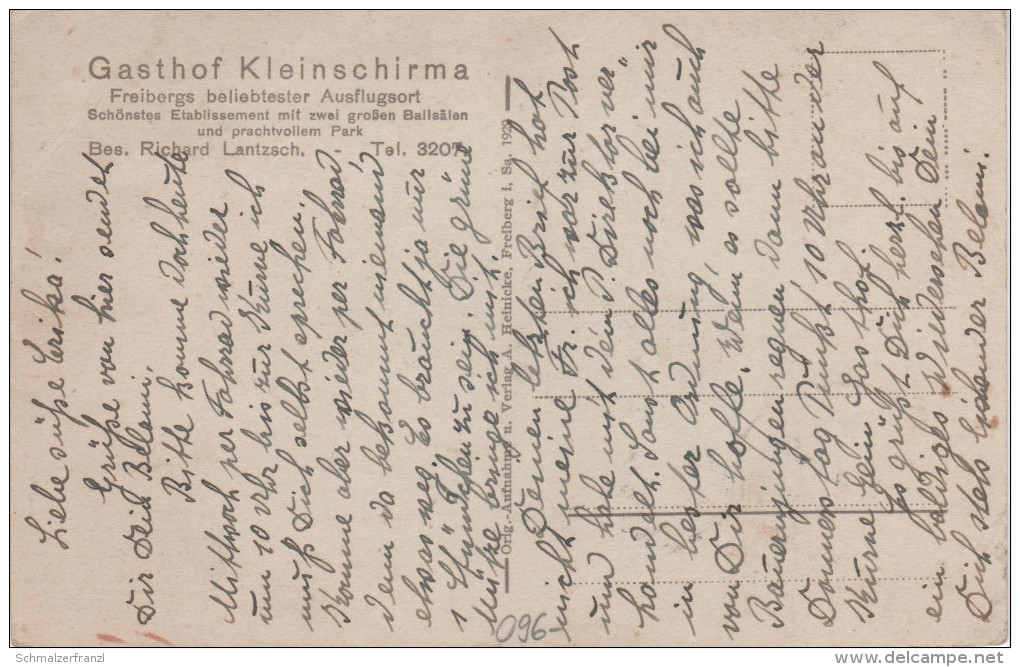 Gasthof Kleinschirma
Freibergs beliebtester Ausflugsort
Schönstes Etablissement mit zwei großen Ballsälen
und prachtvollem Park
Bes. Richard Lantzsch. - Tel. 3207
Orig.-Aufnahme u. Verlag A. Heinicke, Freiberg i. Sa. 1929
Liebe süße Erika!
Grüße von hier sendet
Dir Dein Belami.
Bitte komme doch heute
Mittwoch per Fahrrad wieder
um 10 Uhr bis zur Kurve ich
muß Dich selbst sprechen.
Komme aber wieder per Fahrrad
denn da bekommt niemand
etwas weg. Es braucht ja nur
1 Stündchen zu sein. Die grüne
Mütze bringe ich mit.
Deinen letzten Brief hat
nicht meine Fr. ich war zur Post
und habe mit dem P. Direktor ver"
handelt. Sonst alles noch bei mir
in bester Ordnung was ich auch
von Dir hoffe. Wenn es sollte
Bauernjungen regnen dann bitte
Donnerstag Punkt 10 Uhr an der
Kurve "Klein" Gasthof.
Es grüßt Dich herzl. bis auf
ein baldiges Wiedersehen Dein
Dich stets liebender Belami.
096-
Schmalzerfranzl
www.delcampe.net